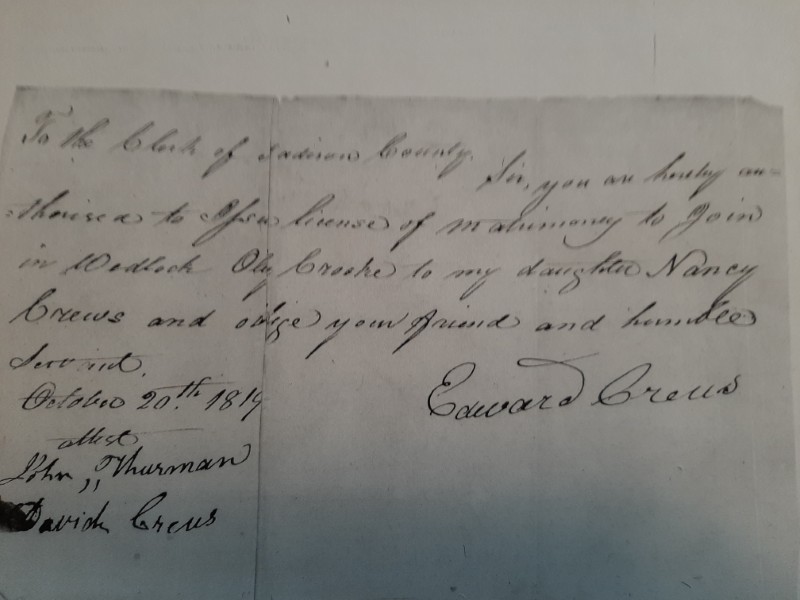 To the Clerk of Madison County.
Sir, you are hereby au=
=thorised to Issue license of matrimoney to Join
in Wedlock Oly Crooke to my daughter Nancy
Crews and oblige your friend and humble
Servant.
October 20th. 1819
Edward Crews
attest
John ,, Thurman
David Crews